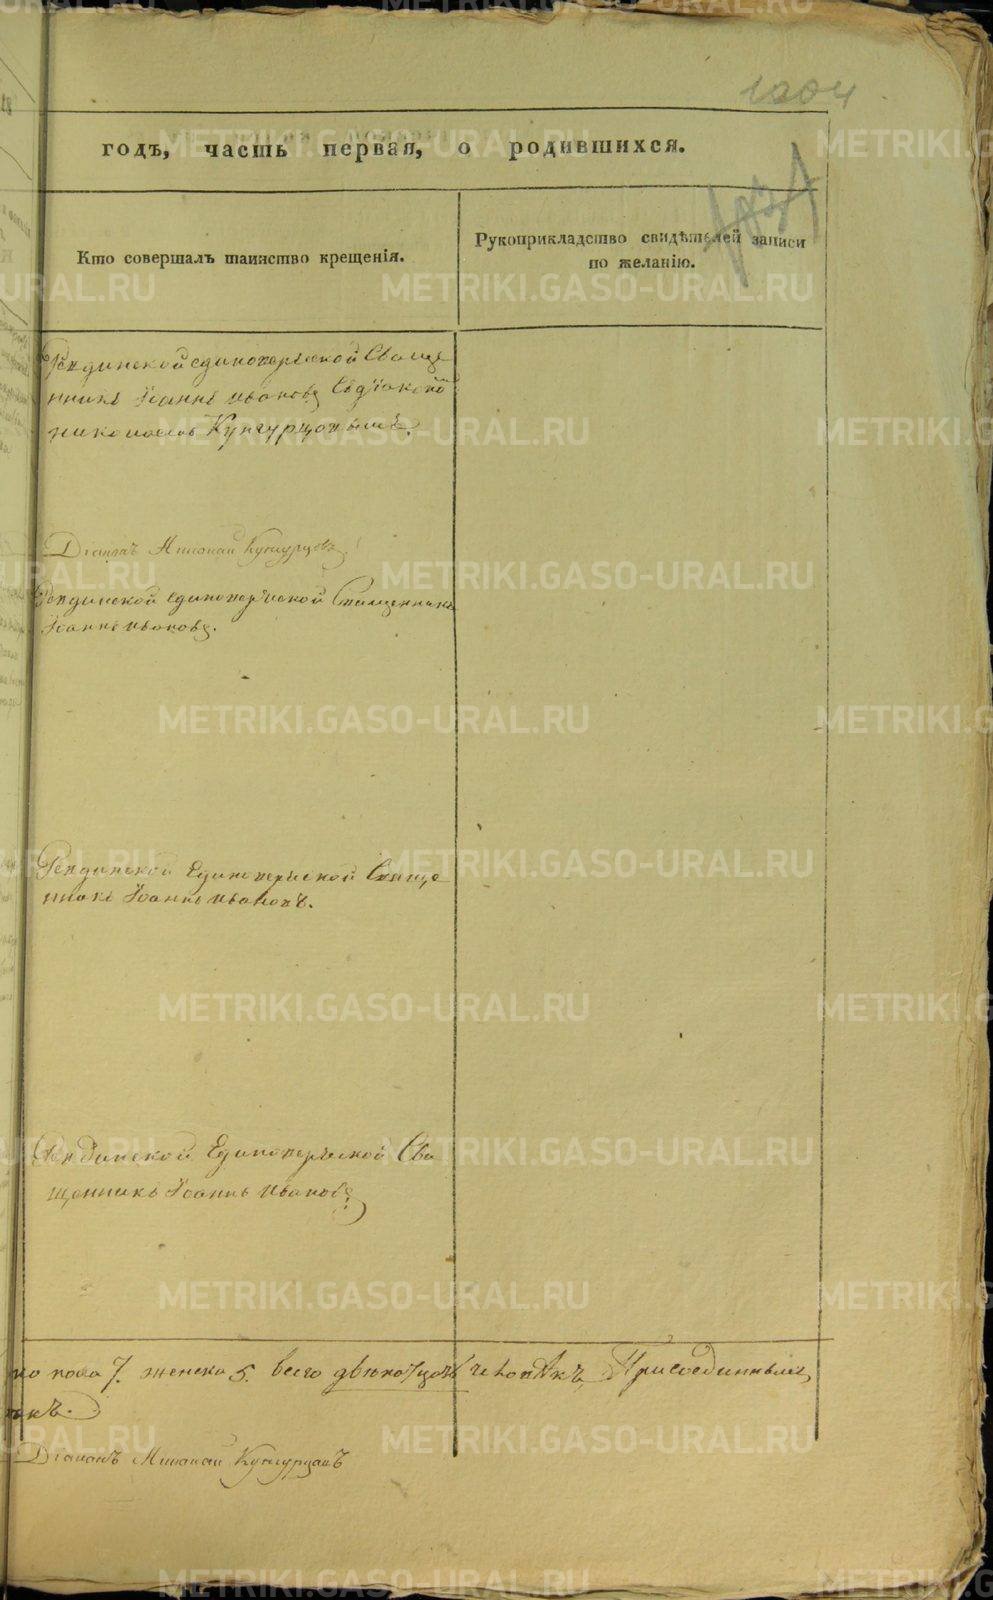 1204
годъ, часть первая, о родившихся.
Кто совершалъ таинство крещенія.
Рукоприкладство свидѣтелей записи
по желанію.
Ревдинской единоверческой Свяще
нникъ Іоаннъ Ивановъ Съ діакономъ
Николаемъ Кунгурцовымъ.
Діаконъ Николай Кунгурцовъ
Ревдинской единоверческой Священникъ
Іоаннъ Ивановъ.
Ревдинской Единоверческой Свяще
нникъ Іоаннъ Ивановъ.
Ревдинской Единоверческой Свя
щенникъ Іоаннъ Ивановъ
ко пола 7. женска 5. всего двенатцать человѣкъ, Присоединенныхъ
Діаконъ Николай Кунгурцовъ
METRIKI.GASO-URAL.RU